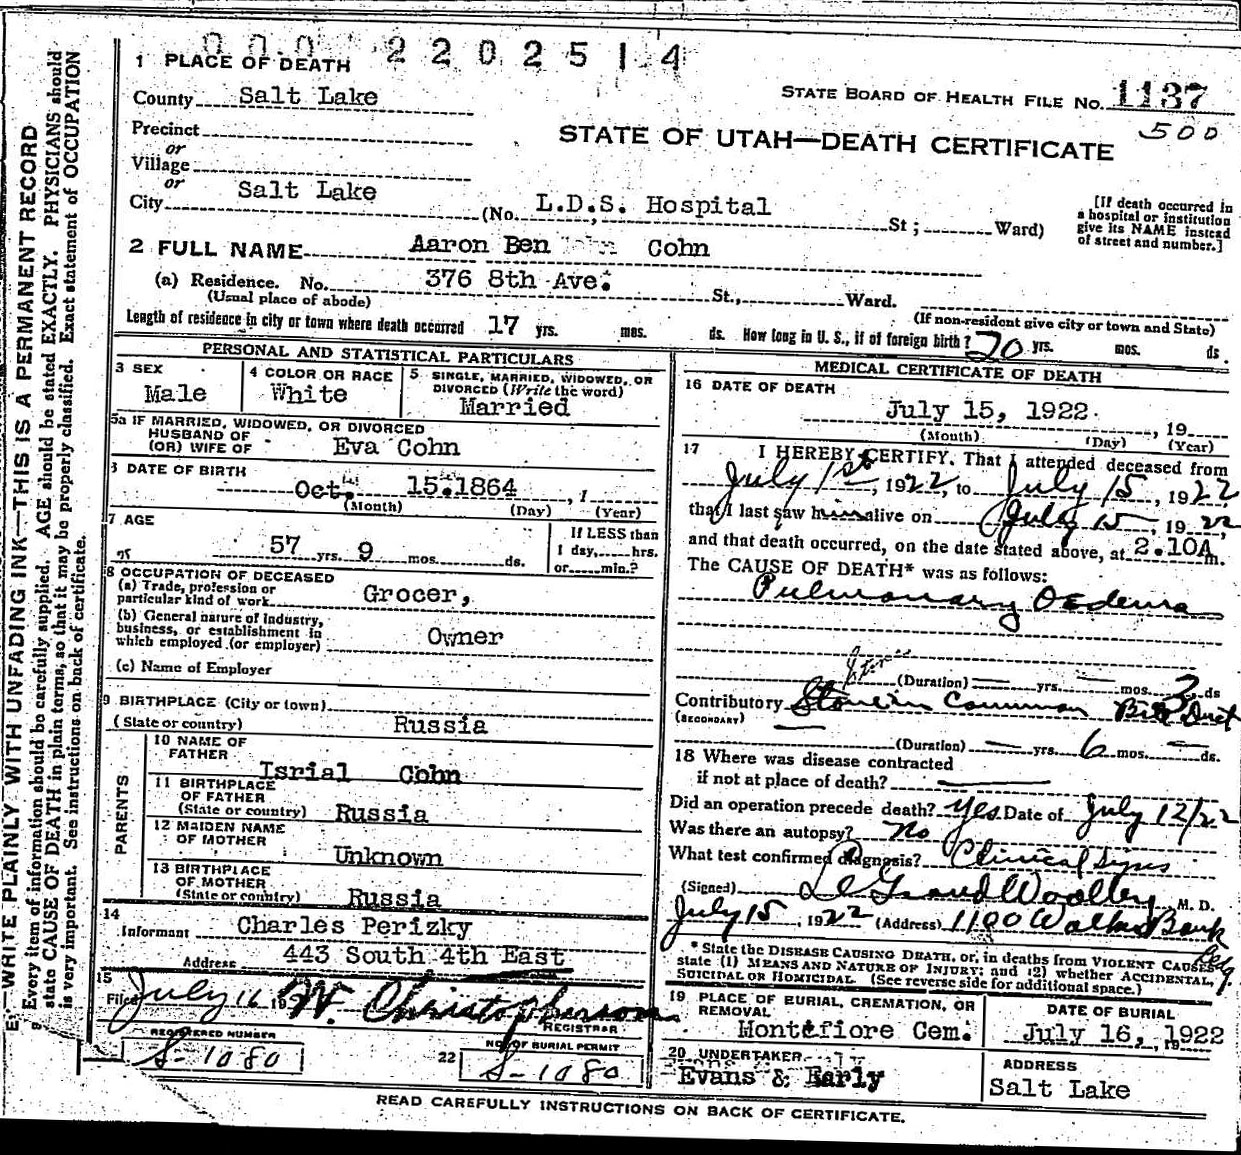 000 2202514
1 PLACE OF DEATH
STATE BOARD OF HEALTH FILE NO. 1137
500
County Salt Lake
Precinct
or
Village
or
City Salt Lake (No. L.D.S. Hospital St; Ward)
STATE OF UTAH—DEATH CERTIFICATE
[If death occurred in
a hospital or institution
give its NAME instead
of street and number.]
2 FULL NAME Aaron Ben Cohn
(a) Residence. No. 376 8th Ave. St., Ward.
(Usual place of abode)
(If non-resident give city or town and State)
Length of residence in city or town where death occurred 17 yrs. mos. ds. How long in U. S., if of foreign birth? 20 yrs. mos. ds.
PERSONAL AND STATISTICAL PARTICULARS
3 SEX
Male
4 COLOR OR RACE
White
5 SINGLE, MARRIED, WIDOWED, OR
DIVORCED (Write the word)
Married
5a IF MARRIED, WIDOWED, OR DIVORCED
HUSBAND OF
(OR) WIFE OF Eva Cohn
6 DATE OF BIRTH
Oct. 15.1864 , 1
(Month) (Day) (Year)
7 AGE
57 yrs. 9 mos. ds.
If LESS than
1 day, hrs.
or min.?
8 OCCUPATION OF DECEASED
(a) Trade, profession or
particular kind of work Grocer,
(b) General nature of industry,
business, or establishment in
which employed (or employer) Owner
(c) Name of Employer
9 BIRTHPLACE (City or town)
(State or country) Russia
PARENTS
10 NAME OF
FATHER
Isrial Cohn
11 BIRTHPLACE
OF FATHER
(State or country) Russia
12 MAIDEN NAME
OF MOTHER
Unknown
13 BIRTHPLACE
OF MOTHER
(State or country) Russia
14
Informant Charles Perizky
Address 443 South 4th East
15
Filed July 16 19 W. Christopherson
REGISTRAR
REGISTERED NUMBER
S-1080
22
NO. OF BURIAL PERMIT
S-1080
MEDICAL CERTIFICATE OF DEATH
16 DATE OF DEATH
July 15, 1922. , 19
(Month) (Day) (Year)
17 I HEREBY CERTIFY, That I attended deceased from
July 1st, 1922, to July 15, 1922
that I last saw him alive on July 15, 1922,
and that death occurred, on the date stated above, at 2.10A m.
The CAUSE OF DEATH* was as follows:
Pulmonary Oedema
(Duration) — yrs. — mos. 2 ds
Contributory Stone in Common Bile Duct
(SECONDARY)
(Duration) — yrs. 6 mos. — ds.
18 Where was disease contracted
if not at place of death? —
Did an operation precede death? Yes Date of July 12/22
Was there an autopsy? No
What test confirmed diagnosis? Clinical Signs
(Signed) Le Grand Woolley M. D.
July 15, 1922 (Address) 1100 Walker Bank Bldg.
* State the DISEASE CAUSING DEATH, or, in deaths from VIOLENT CAUSES,
state (1) MEANS AND NATURE OF INJURY; and (2) whether ACCIDENTAL,
SUICIDAL OR HOMICIDAL. (See reverse side for additional space.)
19 PLACE OF BURIAL, CREMATION, OR
REMOVAL
Montefiore Cem.
DATE OF BURIAL
July 16, 1922
20 UNDERTAKER
Evans & Early
ADDRESS
Salt Lake
READ CAREFULLY INSTRUCTIONS ON BACK OF CERTIFICATE.
WRITE PLAINLY WITH UNFADING INK—THIS IS A PERMANENT RECORD
Every item of information should be carefully supplied. AGE should be stated EXACTLY. PHYSICIANS should
state CAUSE OF DEATH in plain terms, so that it may be properly classified. Exact statement of OCCUPATION
is very important. See instructions on back of certificate.